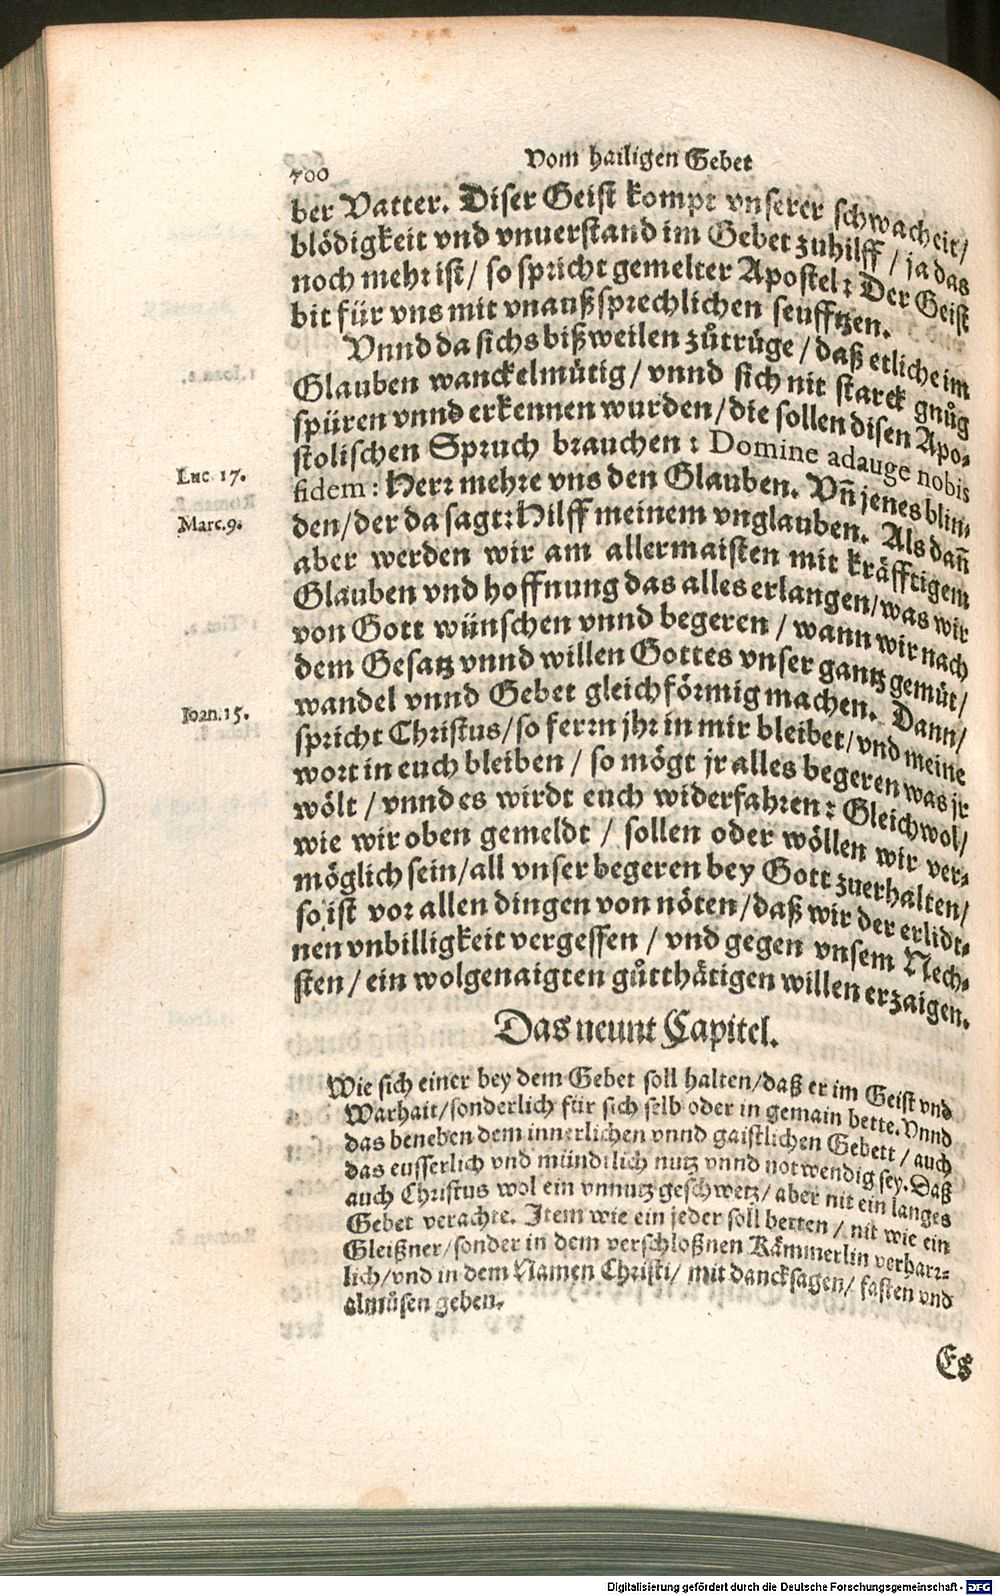 Vom hailigen Gebet
700
ber Vatter. Diser Geist kompt vnserer schwacheit/
blödigkeit vnd vnuerstand im Gebet zuhilff / ja das
noch mehr ist / so spricht gemelter Apostel: Der Geist
bit für vns mit vnaußsprechlichen seufftzen.
Vnnd da sichs bißweilen zůtrüge / daß etliche im
Glauben wanckelmütig / vnnd sich nit starck gnůg
spüren vnnd erkennen wurden / die sollen disen Apo-
stolischen Spruch brauchen: Domine adauge nobis
Luc. 17.
fidem: Herr mehre vns den Glauben. Vñ jenes blin-
Marc. 9.
den / der da sagt: Hilff meinem vnglauben. Als dañ
aber werden wir am allermaisten mit kräfftigem
Glauben vnd hoffnung das alles erlangen / was wir
von Gott wünschen vnnd begeren / wann wir nach
dem Gesatz vnnd willen Gottes vnser gantz gemüt /
wandel vnnd Gebet gleichförmig machen. Dann /
Joan. 15.
spricht Christus / so ferrn jhr in mir bleibet / vnd meine
wort in euch bleiben / so mögt jr alles begeren was jr
wölt / vnnd es wirdt euch widerfahren: Gleichwol /
wie wir oben gemeldt / sollen oder wöllen wir ver-
möglich sein / all vnser begeren bey Gott zuerhalten /
so ist vor allen dingen von nöten / daß wir der erlidt-
nen vnbilligkeit vergessen / vnd gegen vnsem Nech-
sten / ein wolgenaigten gůtthätigen willen erzaigen.
Das neunt Capitel.
Wie sich einer bey dem Gebet soll halten / daß er im Geist vnd
Warhait / sonderlich für sich selb oder in gemain bette. Vnnd
das beneben dem innerlichen vnnd gaistlichen Gebett / auch
das eusserlich vnd mündtlich nutz vnnd notwendig sey. Daß
auch Christus wol ein vnnutz geschwetz / aber nit ein langes
Gebet verachte. Item wie ein jeder soll betten / nit wie ein
Gleißner / sonder in dem verschloßnen Kämmerlin verharr-
lich / vnd in dem Namen Christi / mit dancksagen / fasten vnd
almůsen geben.
Es
Digitalisierung gefördert durch die Deutsche Forschungsgemeinschaft - DFG